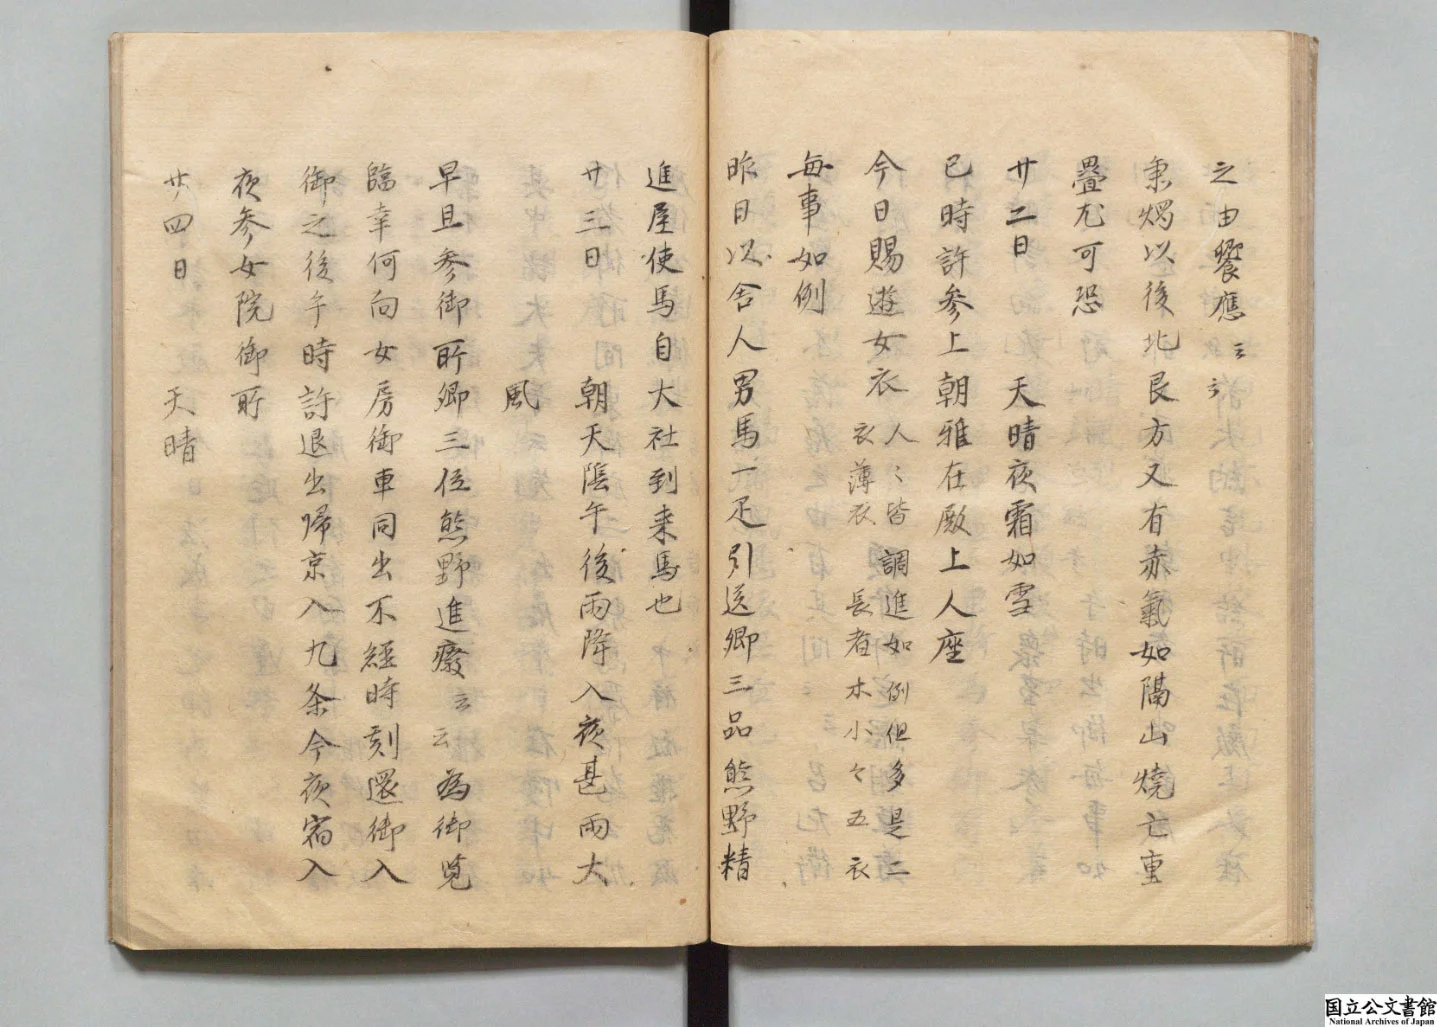 之由饗應云々
秉燭以後北艮方又有赤氣如隔山燒亡重
疊尤可恐
廿二日　天晴夜霜如雪
巳時許参上朝雅在殿上人座
今日賜遊女衣人〻皆調進如例但多是二
衣薄衣　長者木小々五衣
毎事如例
昨日以舎人男馬一疋引送卿三品熊野精
進屋使馬自大社到来馬也
廿三日　朝天陰午後雨降入夜甚雨大
風
早旦参御所卿三位熊野進發云云為御覧
臨幸何向女房御車同出不經時刻還御入
御之後午時許退出帰京入九条今夜宿入
夜参女院御所
廿四日　天晴
国立公文書館
National Archives of Japan